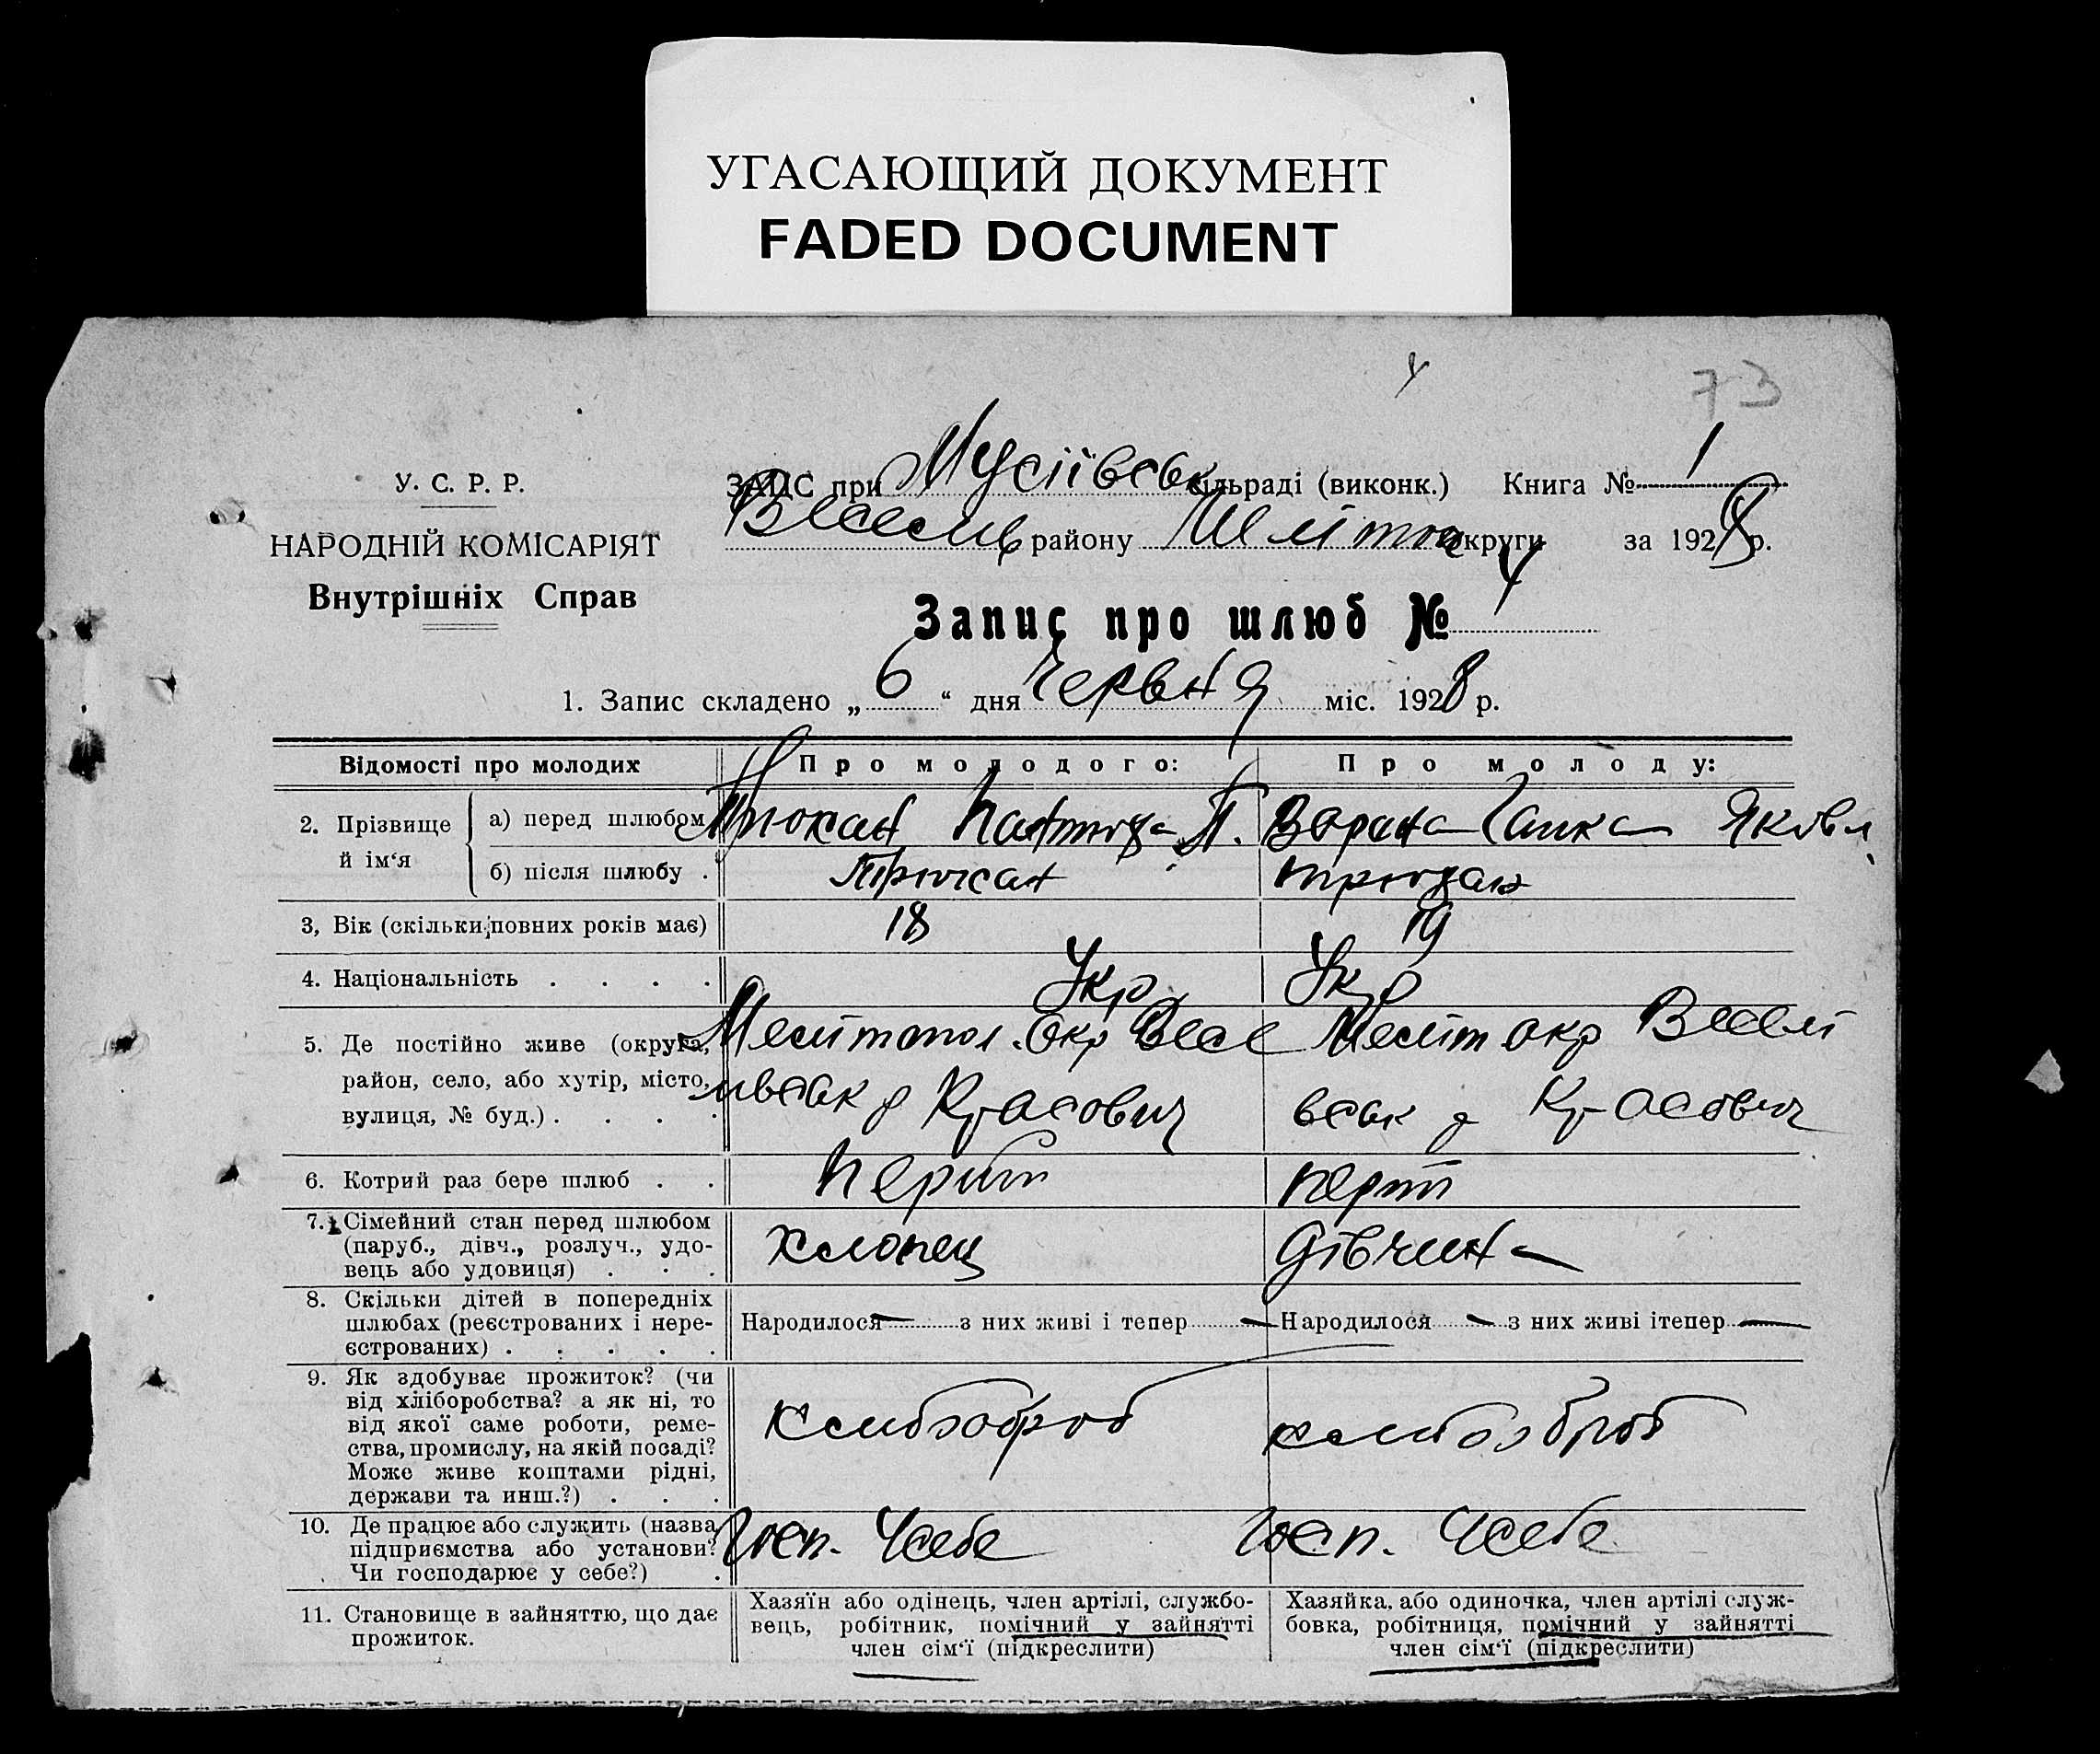 УГАСАЮЩИЙ ДОКУМЕНТ
FADED DOCUMENT
73
У. С. Р. Р.
НАРОДНІЙ КОМІСАРІЯТ
Внутрішніх Справ
ЗАГС при Мусіївськ сільраді (виконк.) Книга № 1
Веселів району Меліто округи за 1928 р.
Запис про шлюб № 4
1. Запис складено „ 6 “ дня Червня міс. 1928 р.
Відомості про молодих
Про молодого:
Про молоду:
2. Прізвище й ім‘я
а) перед шлюбом
П.
Ганка Яковл
б) після шлюбу .
3, Вік (скільки повних років має)
18
19
4. Національність . . . .
Укр
Укр
5. Де постійно живе (округа, район, село, або хутір, місто, вулиця, № буд.) . . . .
Мелітопол. Окр Весе
лівськ р
Меліт окр Веселі
вськ р
6. Котрий раз бере шлюб . .
перший
перш
7. Сімейний стан перед шлюбом
(паруб., дівч., розлуч., удо-
вець або удовиця) . . .
хлопец
дівчина
8. Скільки дітей в попередніх
шлюбах (реєстрованих і нере-
єстрованих) . . . . .
Народилося — з них живі і тепер —
Народилося — з них живі ітепер —
9. Як здобуває прожиток? (чи
від хліборобства? а як ні, то
від якої саме роботи, реме-
ства, промислу, на якій посаді?
Може живе коштами рідні,
держави та инш.?) . . .
хлибороб
хлибороб
10. Де працює або служить (назва
підприємства або установи?
Чи господарює у себе?) .
Госп. Усебе
Госп. Усебе
11. Становище в зайняттю, що дає
прожиток.
Хазяїн або одінець, член артілі, службо-
вець, робітник, помічний у зайнятті
член сім‘ї (підкреслити)
Хазяйка, або одиночка, член артілі служ-
бовка, робітниця, помічний у зайнятті
член сім‘ї (підкреслити)